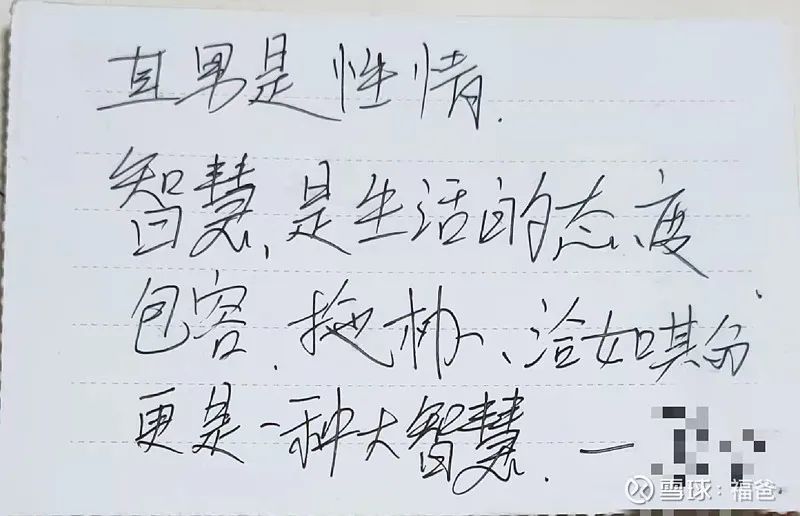 直男是性情.
智慧,是生活的态度
包容.拖协、洽如其分
更是一种大智慧.—
雪球:福爸